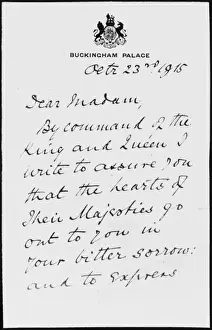 BUCKINGHAM PALACE
Octr 23rd 1915
Dear Madam,
By command of the
King and Queen I
write to assure you
that the hearts of
Their Majesties go
out to you in
your bitter sorrow:
and to express